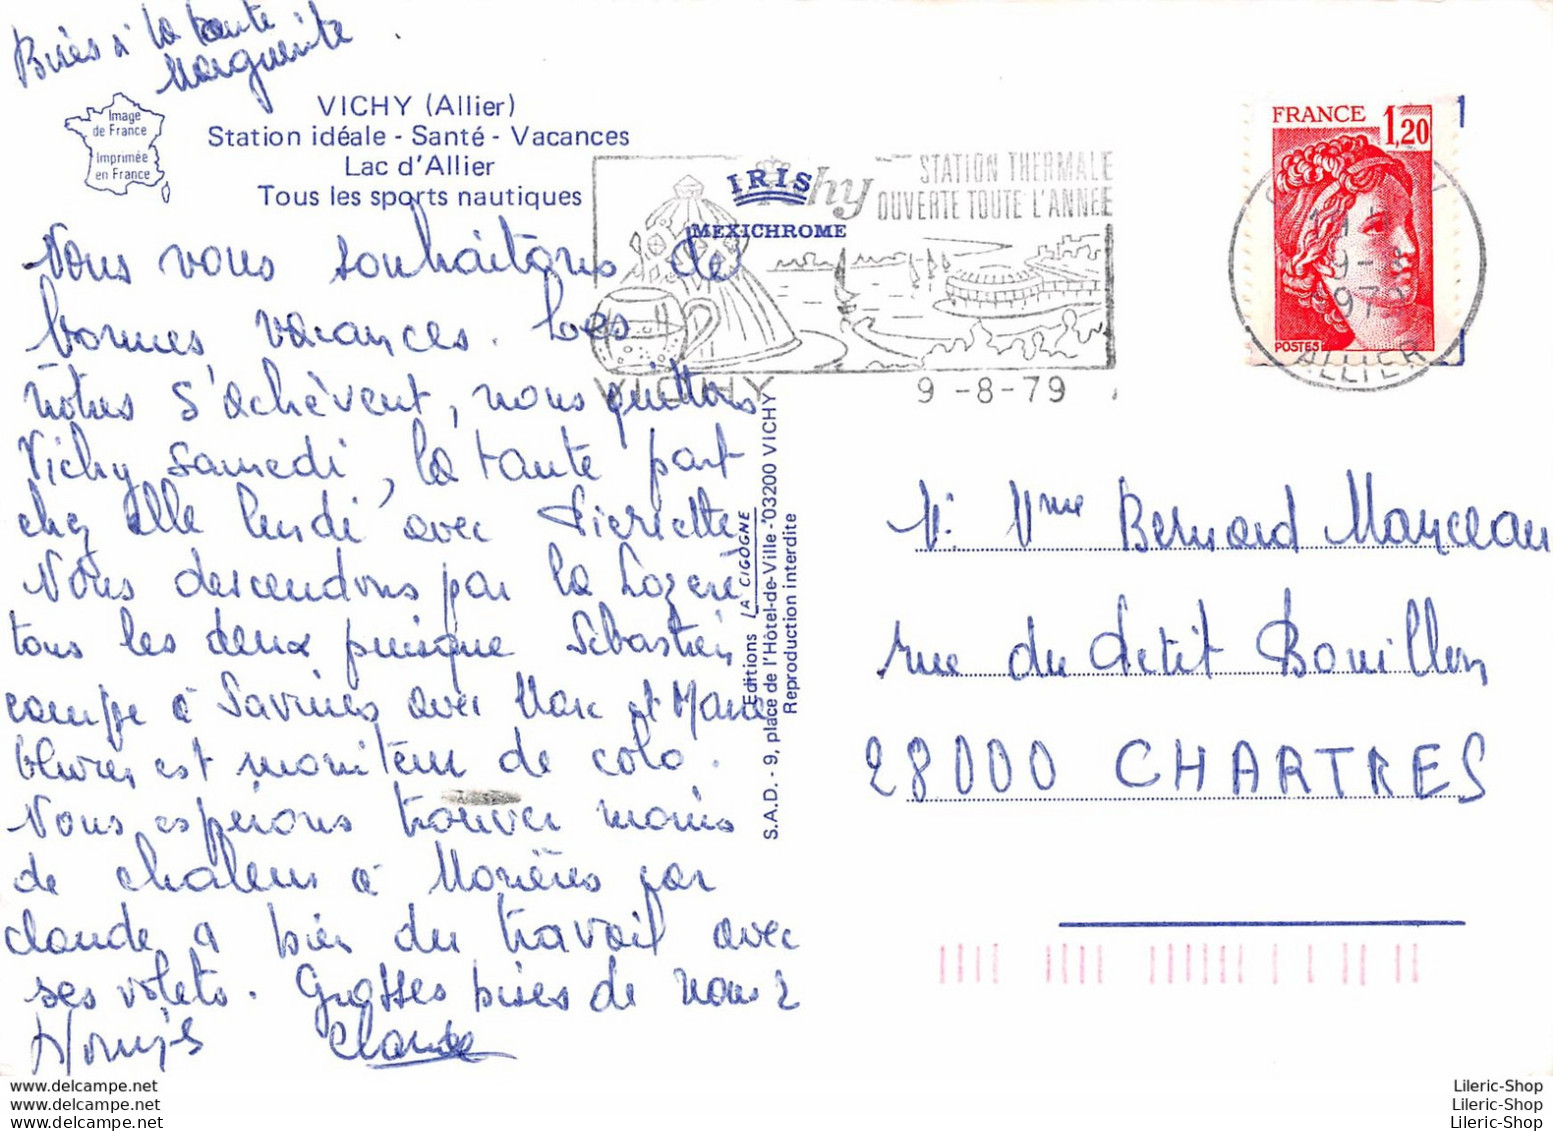 Bises à la tante
Marguerite.
Image
de France
Imprimée
en France
VICHY (Allier)
Station idéale - Santé - Vacances
Lac d'Allier
Tous les sports nautiques
IRIS
MEXICHROME
Vichy
STATION THERMALE
OUVERTE TOUTE L'ANNEE
VICHY
9-8-79
FRANCE 1,20
POSTES
9-8
1979
ALLIER
Nous vous souhaitons de
bonnes vacances. Les
nôtres s'achèvent, nous quittons
Vichy samedi, la tante part
chez elle lundi avec Pierrette
Nous descendons par la Lozère
tous les deux puisque Sébastien
campe à Savines avec Marc et Marie
est moniteur de colo.
Nous espérons trouver moins
de chaleur à Morières car
claude a bien du travail avec
ses volets. Grosses bises de nous 2
Claude
Editions LA CIGOGNE
S.A.D. - 9, place de l'Hôtel-de-Ville - 03200 VICHY
Reproduction interdite
Mme Bernard Manceau
rue du Petit Bouillon
28000 CHARTRES
Lileric-Shop
Lileric-Shop
Lileric-Shop
www.delcampe.net
www.delcampe.net
www.delcampe.net